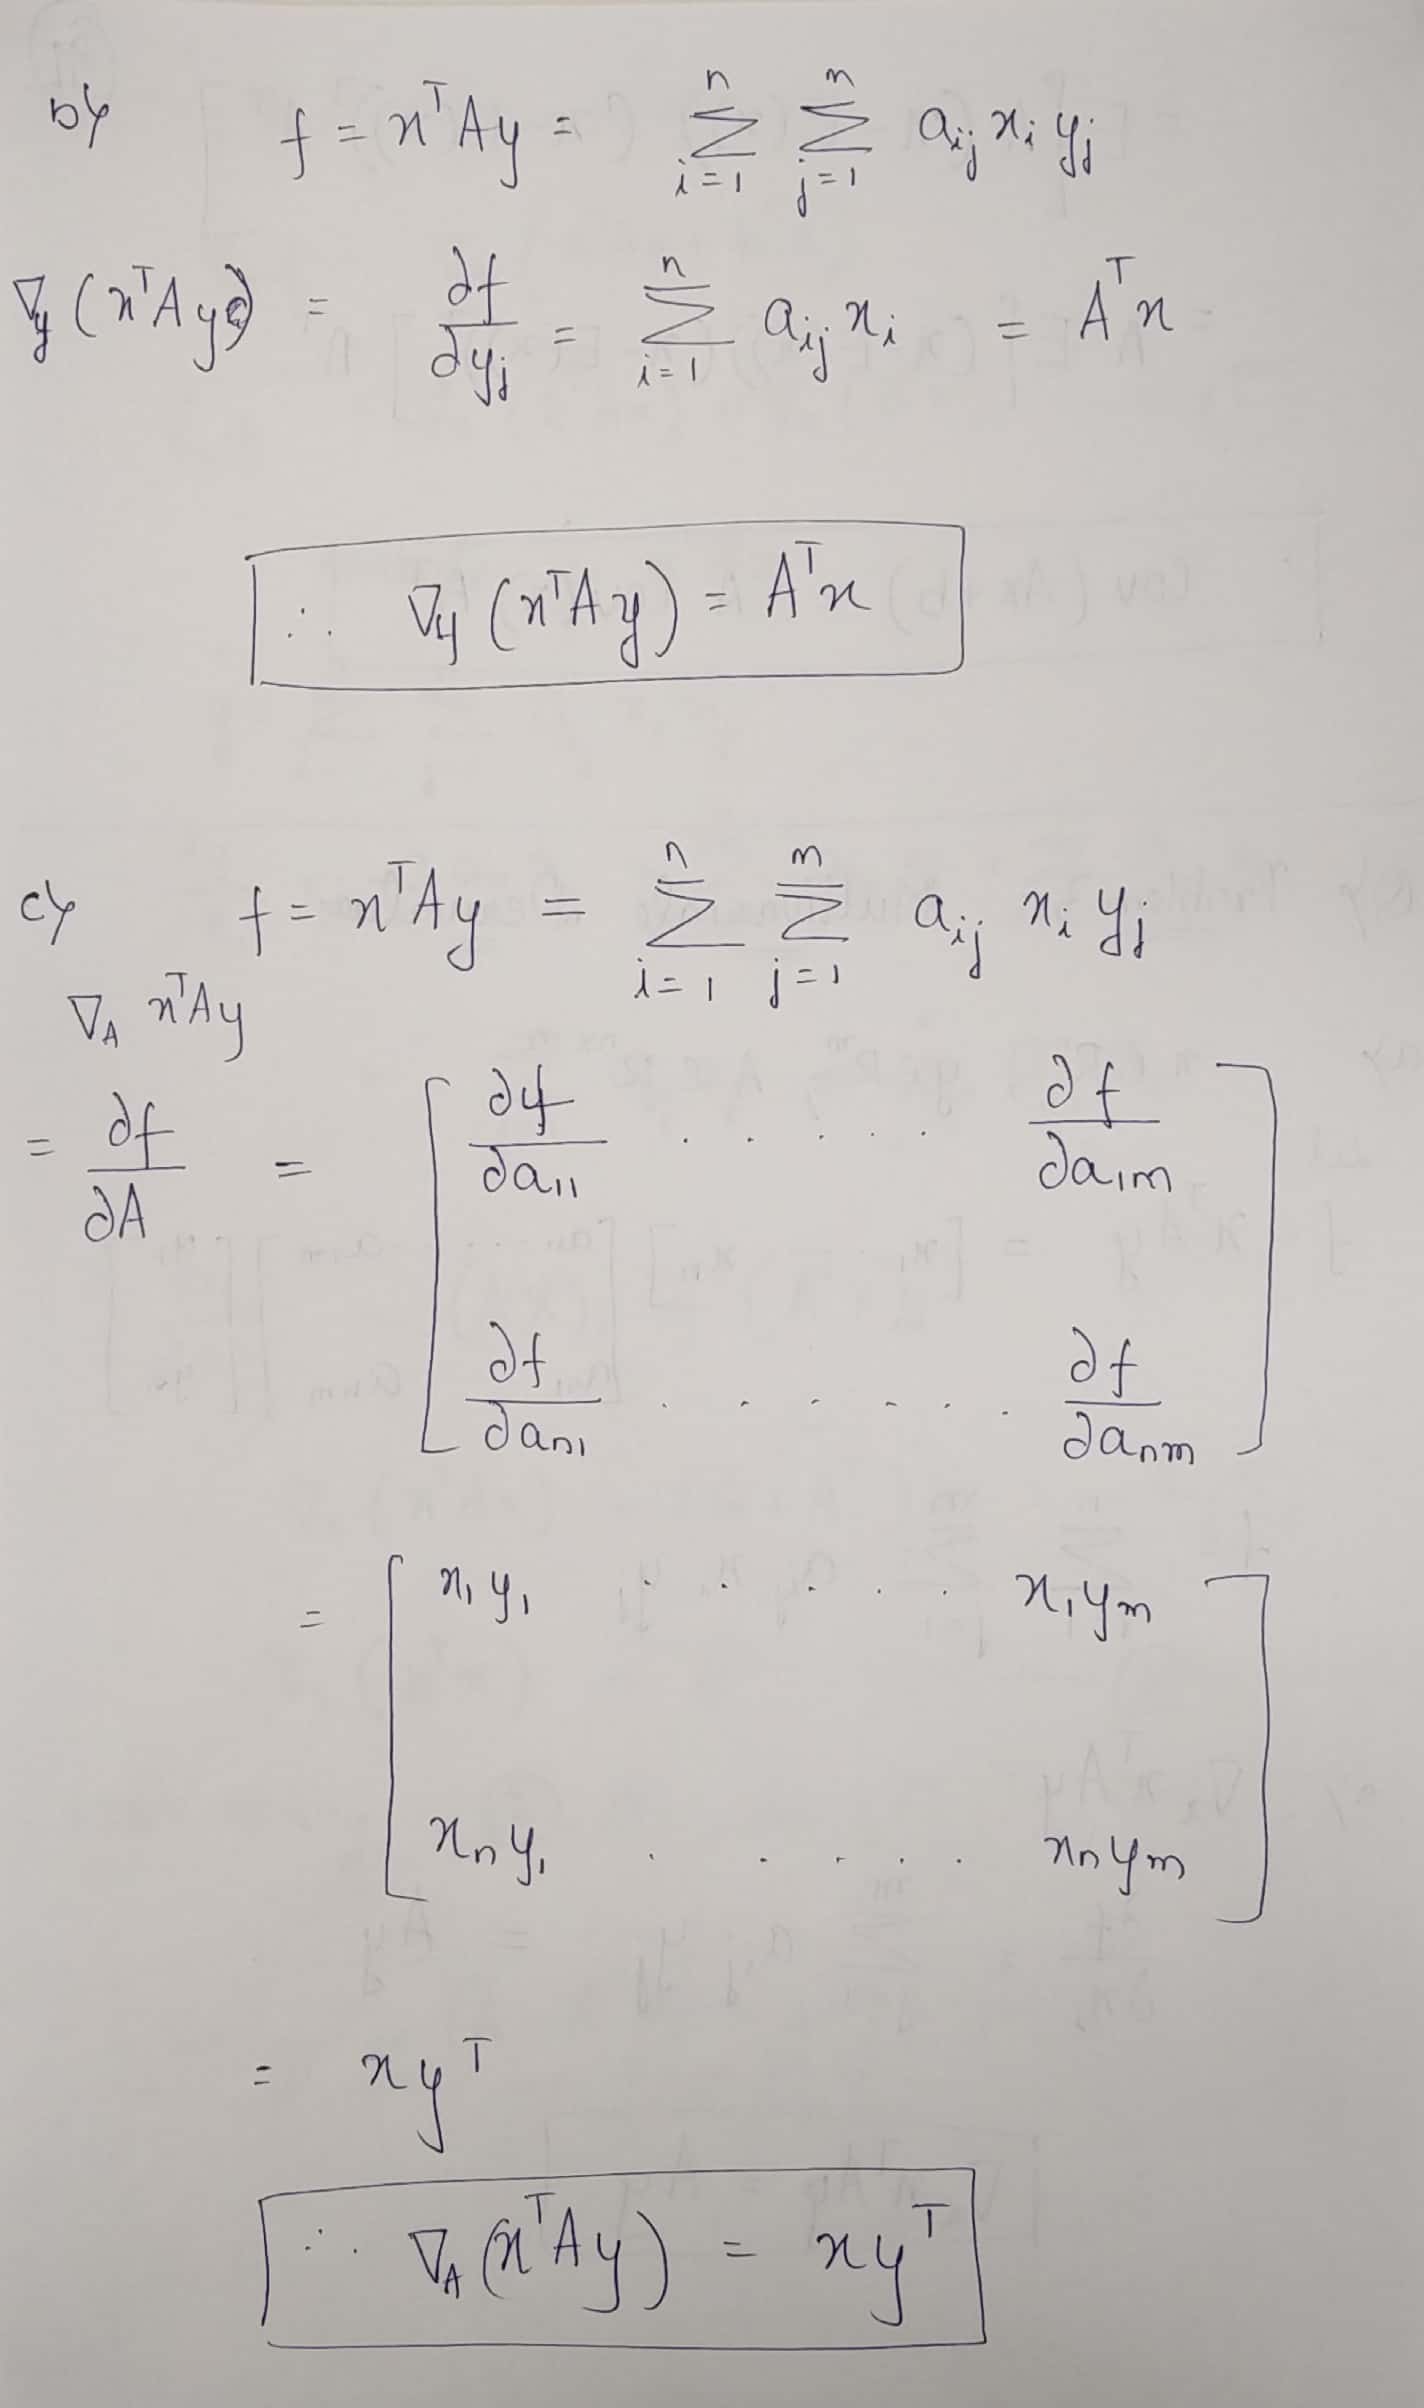 b) f = xᵀAy = Σ_{i=1}^{n} Σ_{j=1}^{m} a_{ij} x_i y_j
∇_y (xᵀAy) = ∂f/∂y_j = Σ_{i=1}^{n} a_{ij} x_i = Aᵀx
∴ ∇_y (xᵀAy) = Aᵀx
c) f = xᵀAy = Σ_{i=1}^{n} Σ_{j=1}^{m} a_{ij} x_i y_j
∇_A xᵀAy
= ∂f/∂A = [ ∂f/∂a_{11} . . . . . ∂f/∂a_{1m}
∂f/∂a_{n1} . . . . . . ∂f/∂a_{nm} ]
= [ x_1 y_1 . . . . . x_1 y_m
x_n y_1 . . . . . x_n y_m ]
= xyᵀ
∴ ∇_A (xᵀAy) = xyᵀ